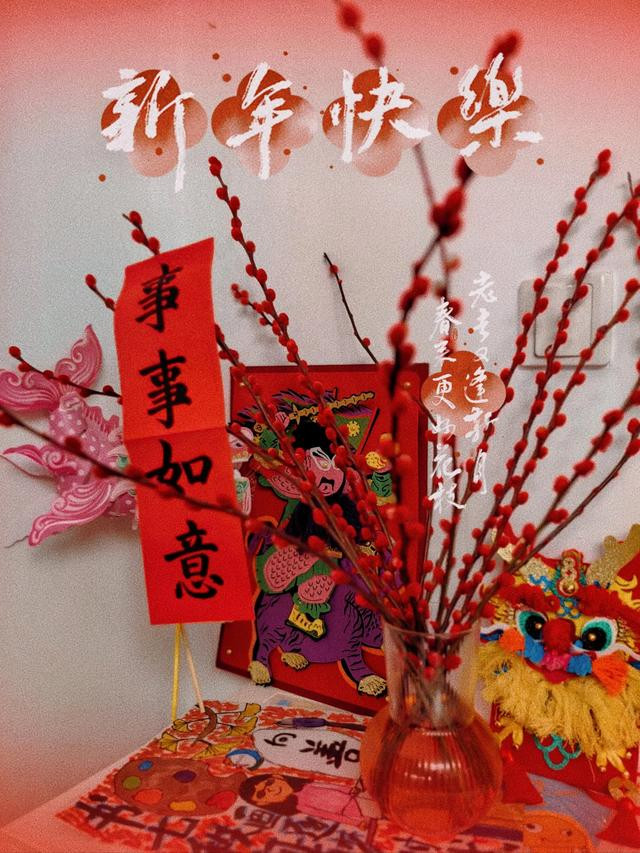 新年快樂
事事如意
老去又逢新月
春来更好花枝